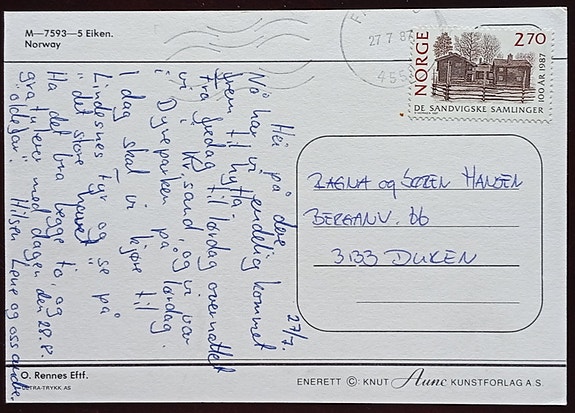 M—7593—5 Eiken.
Norway
27.7.87
NORGE
2.70
DE SANDVIGSKE SAMLINGER
100 ÅR 1987
27/7.
Hei på dere
Nå har vi endelig kommet
frem til hytta.
Fra fredag til lørdag overnattet
vi i Kr.sand, og vi var
i Dyreparken på lørdag.
I dag skal vi kjøre til
Lindesnes fyr og se på
"det store havet"
Ha det bra begge to, og
gratulerer med dagen den 28.8.
"oldefar". Hilsen Lene og oss andre
RAGNA og SØREN HANSEN
BERGANV. 66
3133 DUKEN
O. Rennes Eftf.
ENERETT ©: KNUT Aune KUNSTFORLAG A.S.